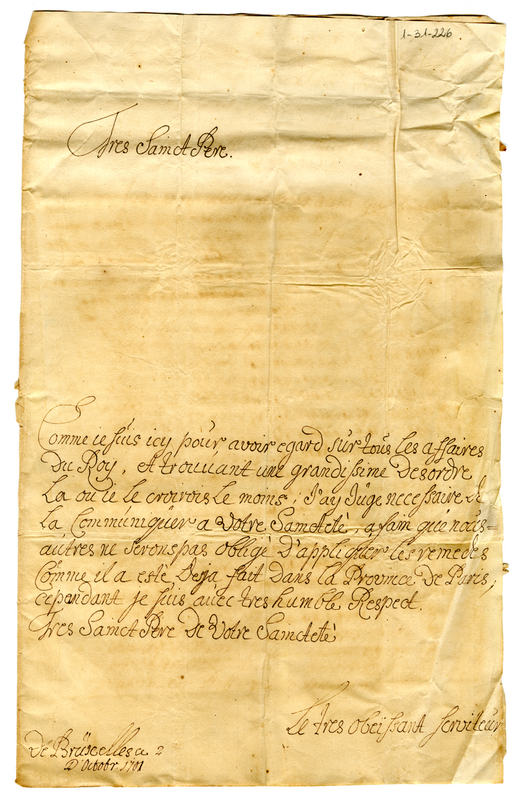 1-31-226
Tres Sainct Pere.
Comme ie suis icy pour avoir egard sur tous les affaires
Du Roy, et trouvant une grandissime Desordre
La ou ie le croirois le moins, J'ay Juge necessaire de
La Communiquer a Votre Sainctetè, afain que nous-
autres ne serons pas obligè D'appliquer les remedes
Comme il a estè Desja fait Dans la Province De Paris,
cependant Je suis avec tres humble Respect.
Tres Sainct Pere De Votre Sainctetè
Le tres obeissant serviteur
De Brüscelles a 2
D'Octobr. 1701